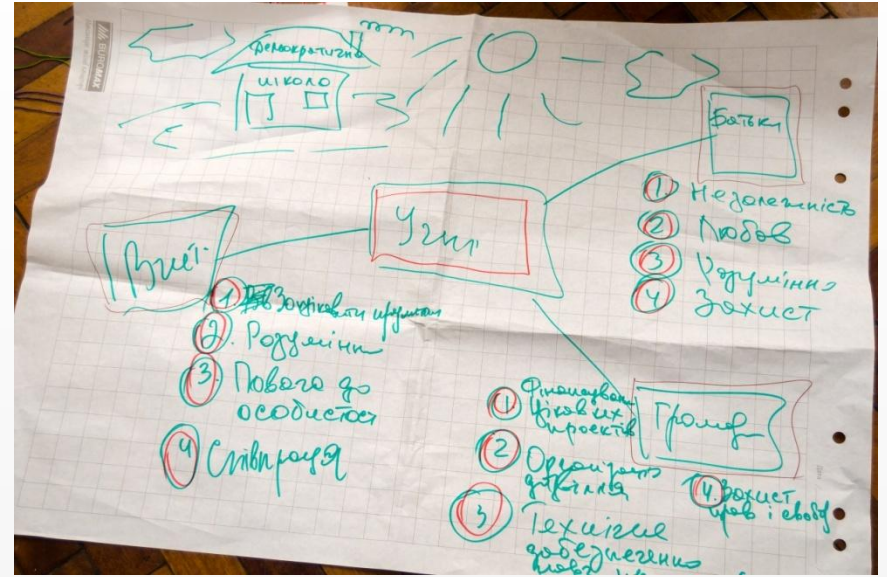 BUROMAX
Демократична
школа
Батьки
① Незалежність
② Любов
③ Розуміння
④ Захист
Учні
Вчит.
① Зацікавити
2. Розуміння
3. Повага до
особистост
4 Співпраця
Громад
① Фінансуван
цікавих
проектів
②
дозвілля
③ Технічне
забезпечення
4. Захист
прав і свобод